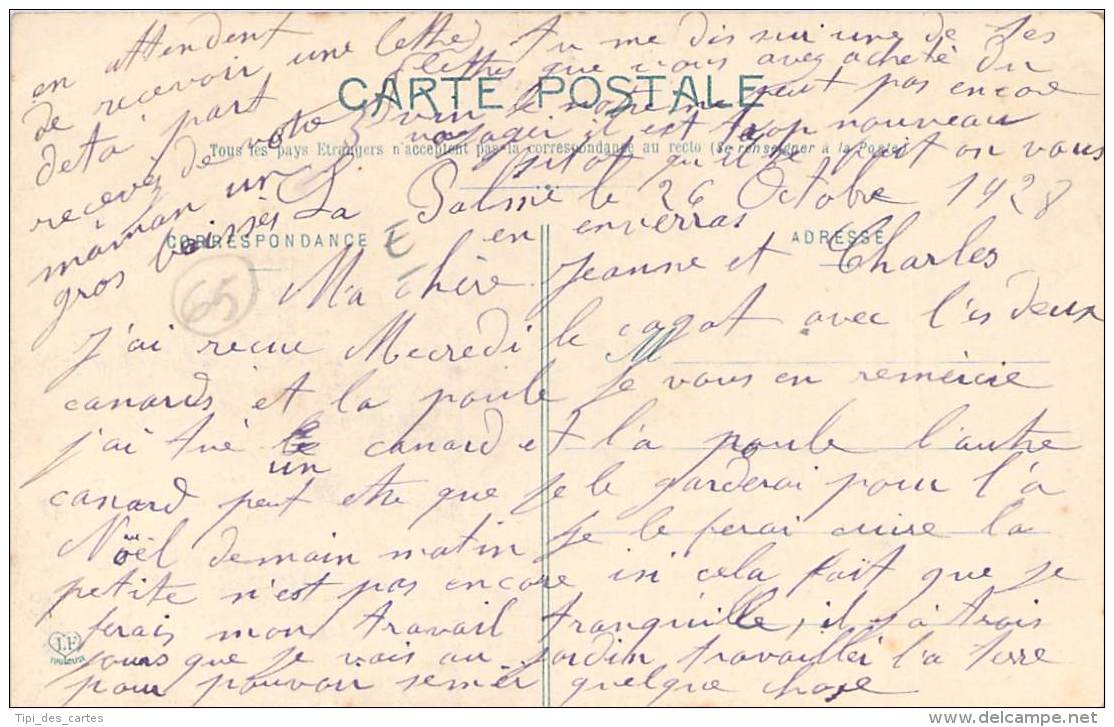 CARTE POSTALE
Tous les pays Etrangers n'acceptent pas la correspondance au recto (Se renseigner à la Poste)
CORRESPONDANCE
ADRESSE
La Palme le 26 Octobre 1928
Ma chère Jeanne et Charles
j'ai recue Mecredi le cagot avec l'es deux
canards et la poule Je vous en remercie
j'ai tué un canard et l'a poule l'autre
canard peut etre que je le garderai pour l'a
Noël demain matin je le ferai cuire la
petite n'est pas encore ici cela fait que je
ferais mon travail tranquille, il y à trois
jours que je vais au jardin travailler l'a terre
pour pouvoir semer quelque chose
en attendent
de recevoir une lettre
de ta part
recevez de votre
maman un
gros baisers
tu me dis sur une de tes
lettres que vous avez acheté du
vin le notre ne peut pas encore
voyager il est trop nouveau
on vous
en enverras
M
65
E
LF
TOULOUSE
Tipi_des_cartes
delcampe.net